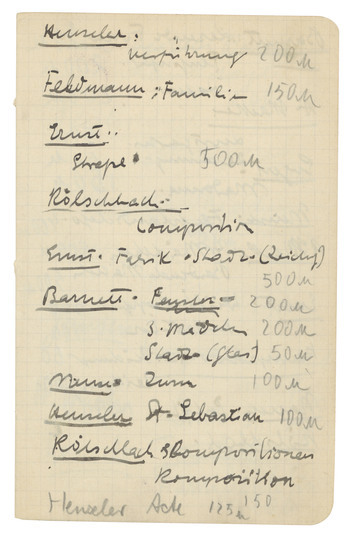 Henseler:
Verführung 200 M
Feldmann: Familie 150 M
Ernst:
Strasse 500 M
Rölschbach
Composition
Ernst. Fabrik - Stadt - (Reichg)
500 M
Barnett - Fenster 200 M
3. Mädchen 200 M
Stadt (Glas) 50 M
Zum 100 M
Henseler St. Sebastian 100 M
Rölschbach 3 Compositionen
Komposition
Henseler Akte 125 M 150